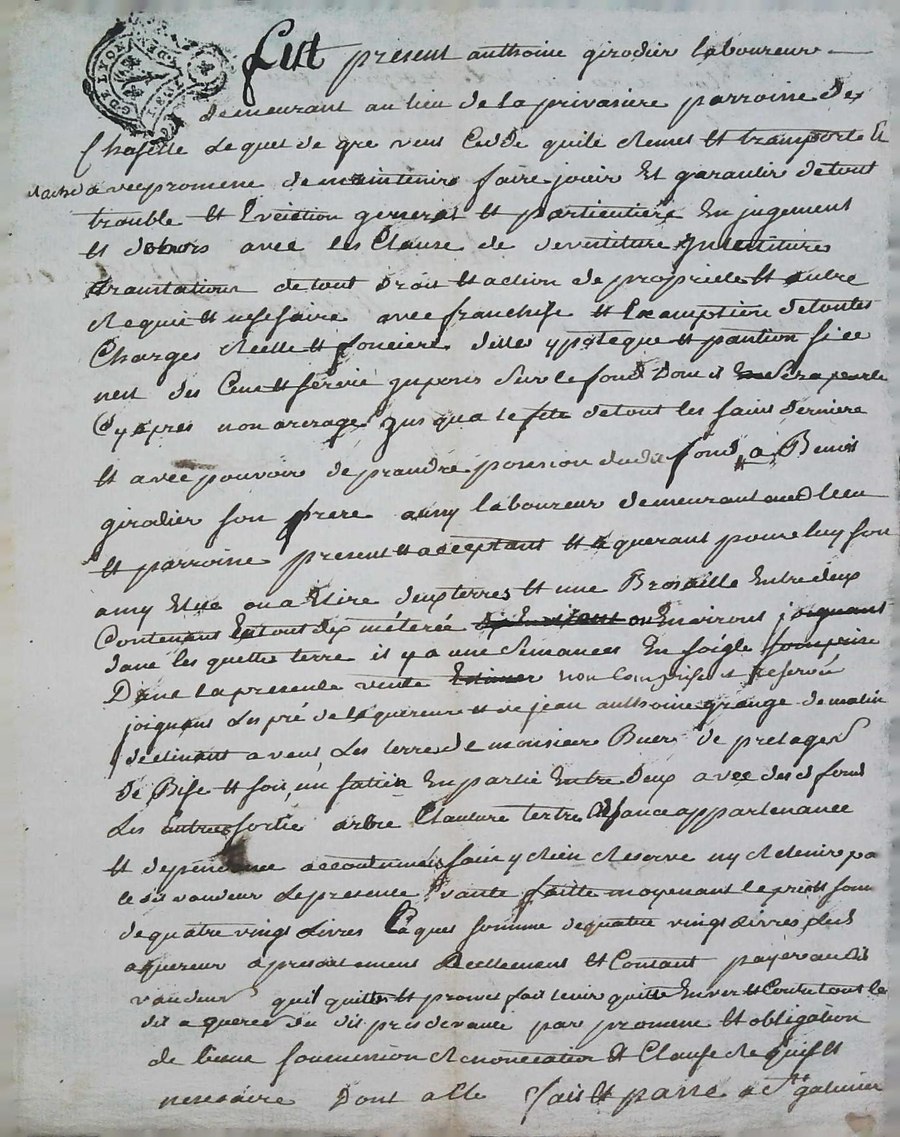 Fut present anthoine girodier laboureur
demeurant au lieu de la privasiere parroine de
Chaselle Lequel de gre vent Cedde quite Remet et transporte Et
avec promene de maintenir faire jouir Et garantir de tout
trouble et Eviction general et particuliere En jugement
et dehors avec les Clause de devestiture Investiture
translation de tout droit et action de propriete et autre
Requit et nessesaire avec franchise et Exemption de toutes
Charges Reelle et fonciere dille ypoteque et pantion si ce
nest des Cens et servis
Cy apres non arerage jusqua le fete de tout les saint derniere
et avec pouvoir de prandre posesion fond a Benoit
girodier son frere aussy laboureur demeurant aud lieu
et parroine present et aceptant et aquerant pour luy son
amy Elue ou a Elire deux terres et une Brosaille Entre deux
Contenant En tout dix méterée ou Environt joignant
dans les quelle terre il y a une Semances En soigle
Dans la presente vente non Comprise et Reservé
joignant Les pré de laquereur et de jean anthoine grange de matin
declinant a vent, Les terre de monsieur de
de Bise et soir, un En partie Entre deux avec desd fond
Les Entree sortie arbre Clauture tertre appartenance
et dependance accoutumés sans y rien Reserve ny Retenir pa
le dit vandeur Le presente vante faitte moyenant le prix et som
de quatre vingt Livres Laquel somme de quatre vingt Livres
aquereur a presentement Reellement et Contant payer audit
vandeur quil quitte et promet fait tenir quitte Enver et Contre tout le
dit aquereur du dit prix de vante par promene et obligation
de biens soumission Renonciation et Clause Requise et
nesesaire Dont acte fait et passe a St galmier